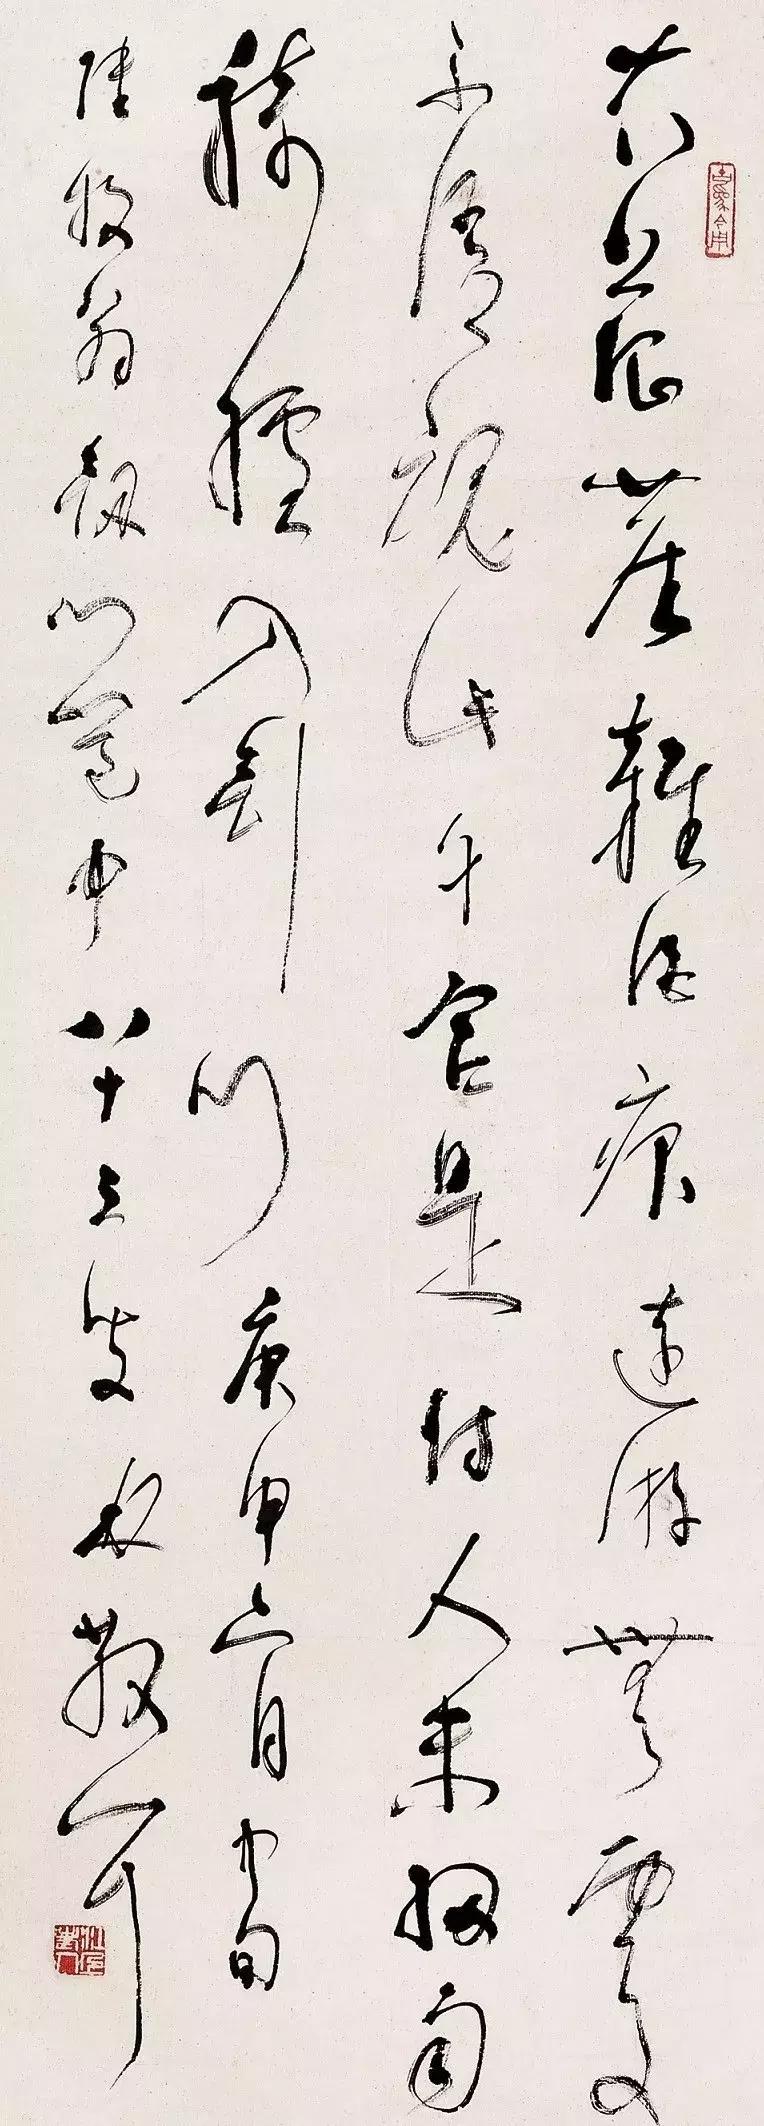 衣上征塵雜酒痕遠游無處
不消魂此身合是詩人未細雨
騎驢入劍門庚申月中旬
陸放翁劍門道中八十三叟林散耳